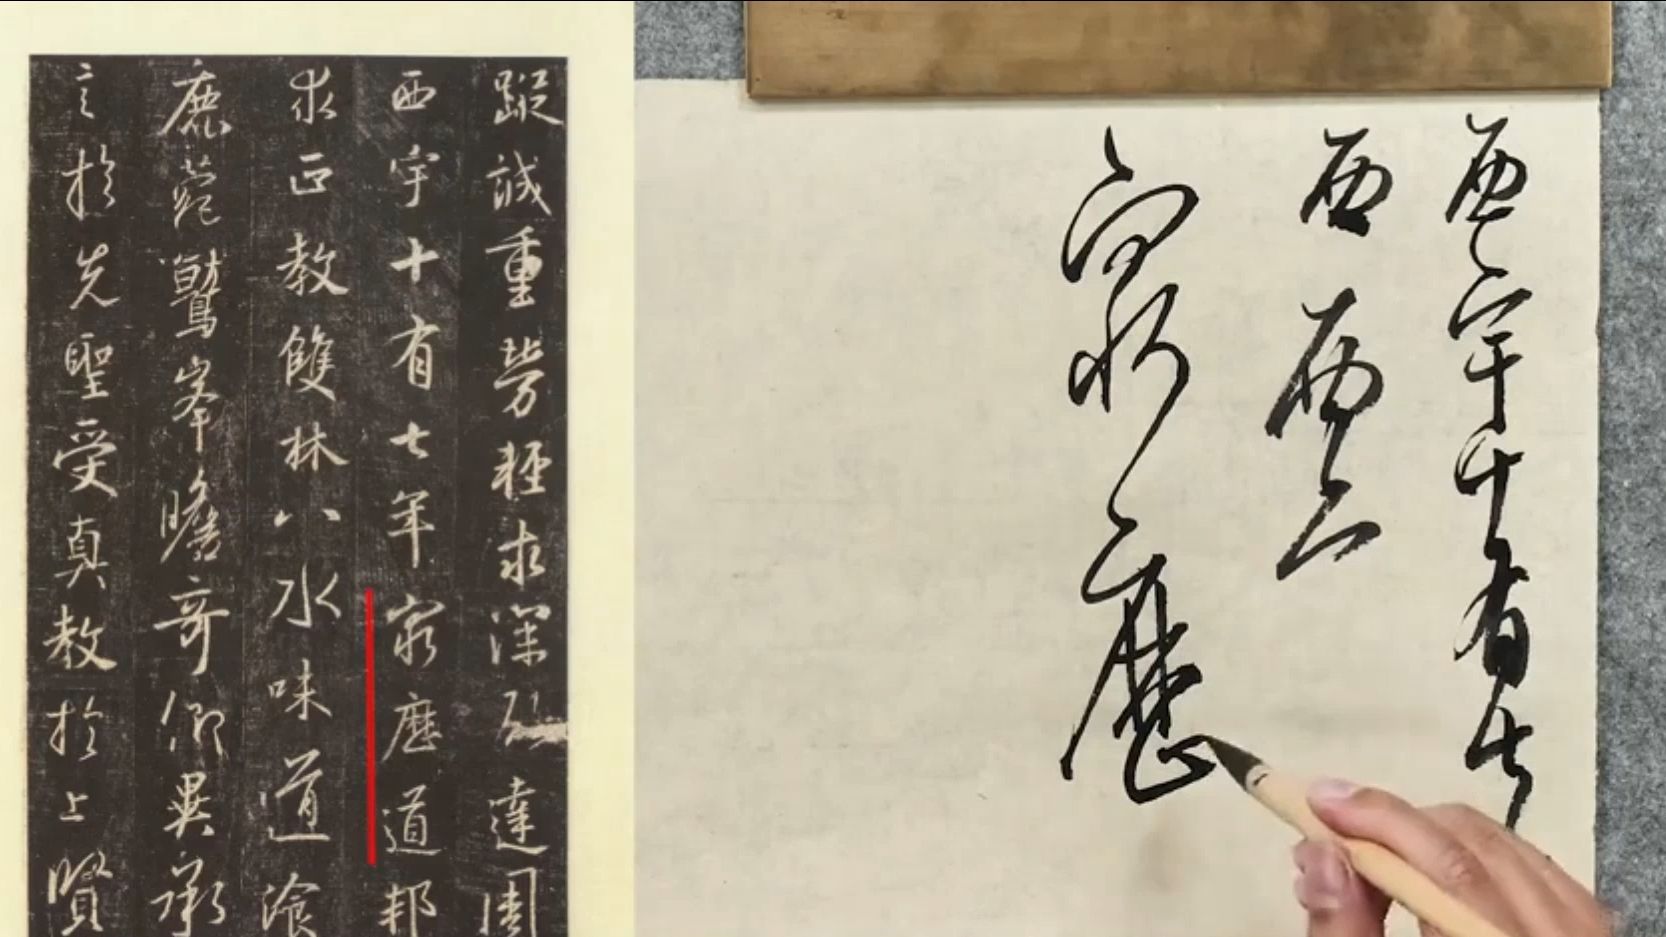 蹤誠重勞輕求深達周
西宇十有七年窮歷道邦
求正教雙林八水味道飡
鹿菀鷲峯瞻奇仰異承
言於先聖受真教於上賢
西宇十有七
西西
窮歷